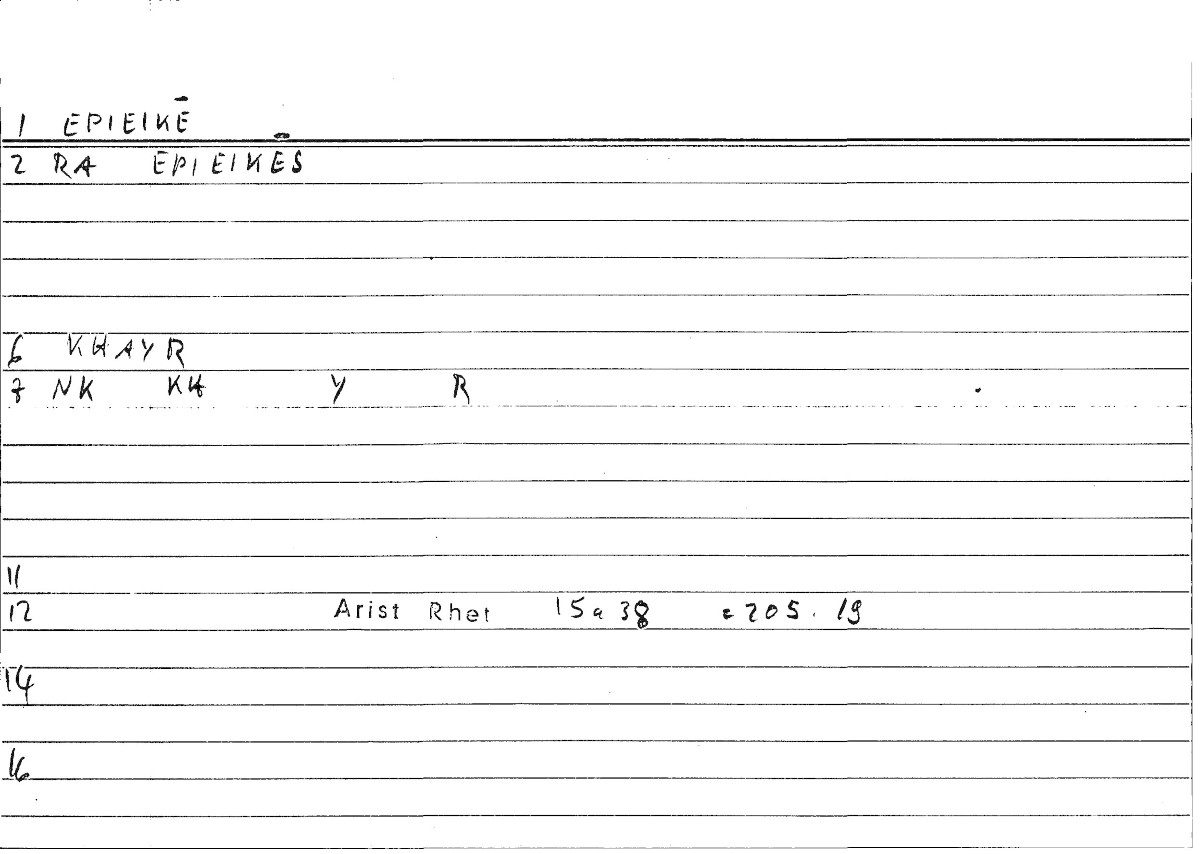 1 EPIEIKĒ
2 RA EPIEIKĒS
6 KHAYR
7 NK KH Y R
11
12 Arist Rhet 15a38 =205.19
14
16